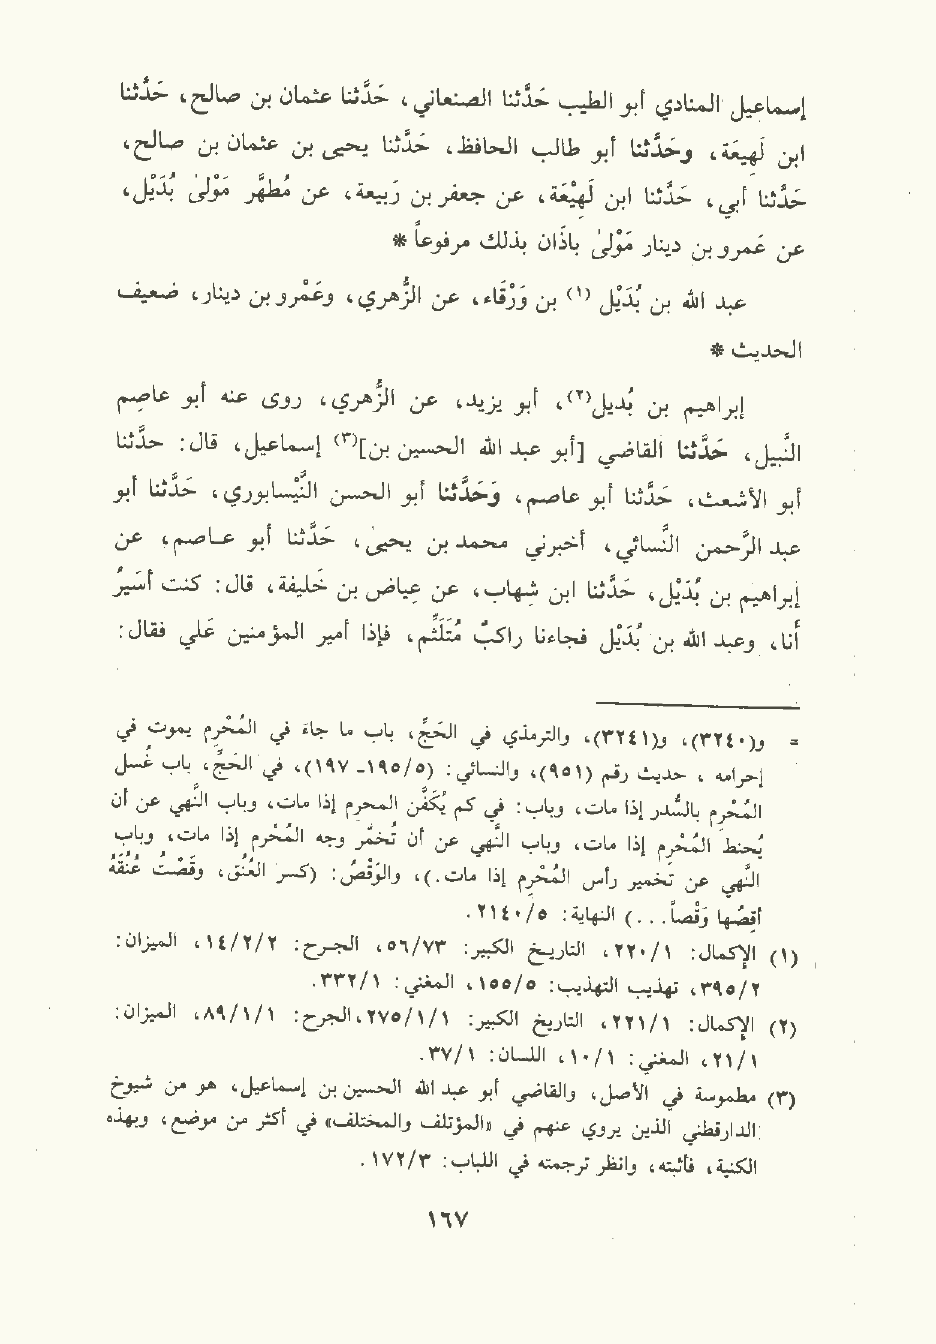 إسماعيل المنادي أبو الطيب حَدَّثنا الصنعاني، حَدَّثنا عثمان بن صالح، حَدَّثنا
ابن لَهِيعَة، وحَدَّثنا أبو طالب الحافظ، حَدَّثنا يحيى بن عثمان بن صالح،
حَدَّثنا أبي، حَدَّثنا ابن لَهِيْعَة، عن جعفر بن رَبيعة، عن مُطهَّر مَوْلىٰ بُدَيْل،
عن عَمرو بن دينار مَوْلىٰ باذَان بذلك مرفوعاً *
عبد الله بن بُدَيْل (١) بن وَرْقَاء، عن الزُّهري، وعَمْرو بن دينار، ضعيف
الحديث *
إبراهيم بن بُديل(٢)، أبو يزيد، عن الزُّهري، روى عنه أبو عاصم
النَّبيل، حَدَّثنا القاضي [أبو عبد الله الحسين بن](٣) إسماعيل، قال: حدَّثنا
أبو الأشعث، حَدَّثنا أبو عاصم، وَحَدَّثنا أبو الحسن النَّيْسابوري، حَدَّثنا أبو
عبد الرَّحمن النَّسائي، أخبرني محمد بن يحيىٰ، حَدَّثنا أبو عاصم، عن
إبراهيم بن بُدَيْل، حَدَّثنا ابن شهاب، عن عياض بن خَليفة، قال: كنت أسَيرُ
أنا، وعبد الله بن بُدَيْل فجاءنا راكبٌ مُتَلَثِّم، فإذا أمير المؤمنين عَلي فقال:
= و(٣٢٤٠)، و(٣٢٤١)، والترمذي في الحَجِّ، باب ما جاءَ في المُحْرِم يموت في
إحرامه ، حديث رقم (٩٥١)، والنسائي: (١٩٥/٥ـ ١٩٧)، في الحَجِّ، باب غَسل
المُحْرِم بالسِّدر إذا مات، وباب: في كم يُكَفَّن المحرم إذا مات، وباب النَّهي عن أن
يُحنط المُحْرِم إذا مات، وباب النَّهي عن أن تُخمَّر وجه المُحْرِم إذا مات، وباب
النَّهي عن تَخمير رأس المُحْرِم إذا مات.)، والوَقْصُ: (كسر العُنُق، وقصْتُ عُنُقَهُ
أقِصُها وَقْصاً...) النهاية: ٢١٤٠/٥.
(١) الإِكمال: ٢٢٠/١، التاريخ الكبير: ٥٦/٧٣، الجرح: ١٤/٢/٢، الميزان:
٣٩٥/٢، تهذيب التهذيب: ١٥٥/٥، المغني: ٣٣٢/١.
(٢) الإِكمال: ٢٢١/١، التاريخ الكبير: ٢٧٥/١/١، الجرح: ٨٩/١/١، الميزان:
٢١/١، المغني: ١٠/١، اللسان: ٣٧/١.
(٣) مطموسة في الأصل، والقاضي أبو عبد الله الحسين بن إسماعيل، هو من شيوخ
الدارقطني الذين يروي عنهم في «المؤتلف والمختلف» في أكثر من موضع، وبهذه
الكنية، فأثبته، وانظر ترجمته في اللباب: ١٧٢/٣.
١٦٧